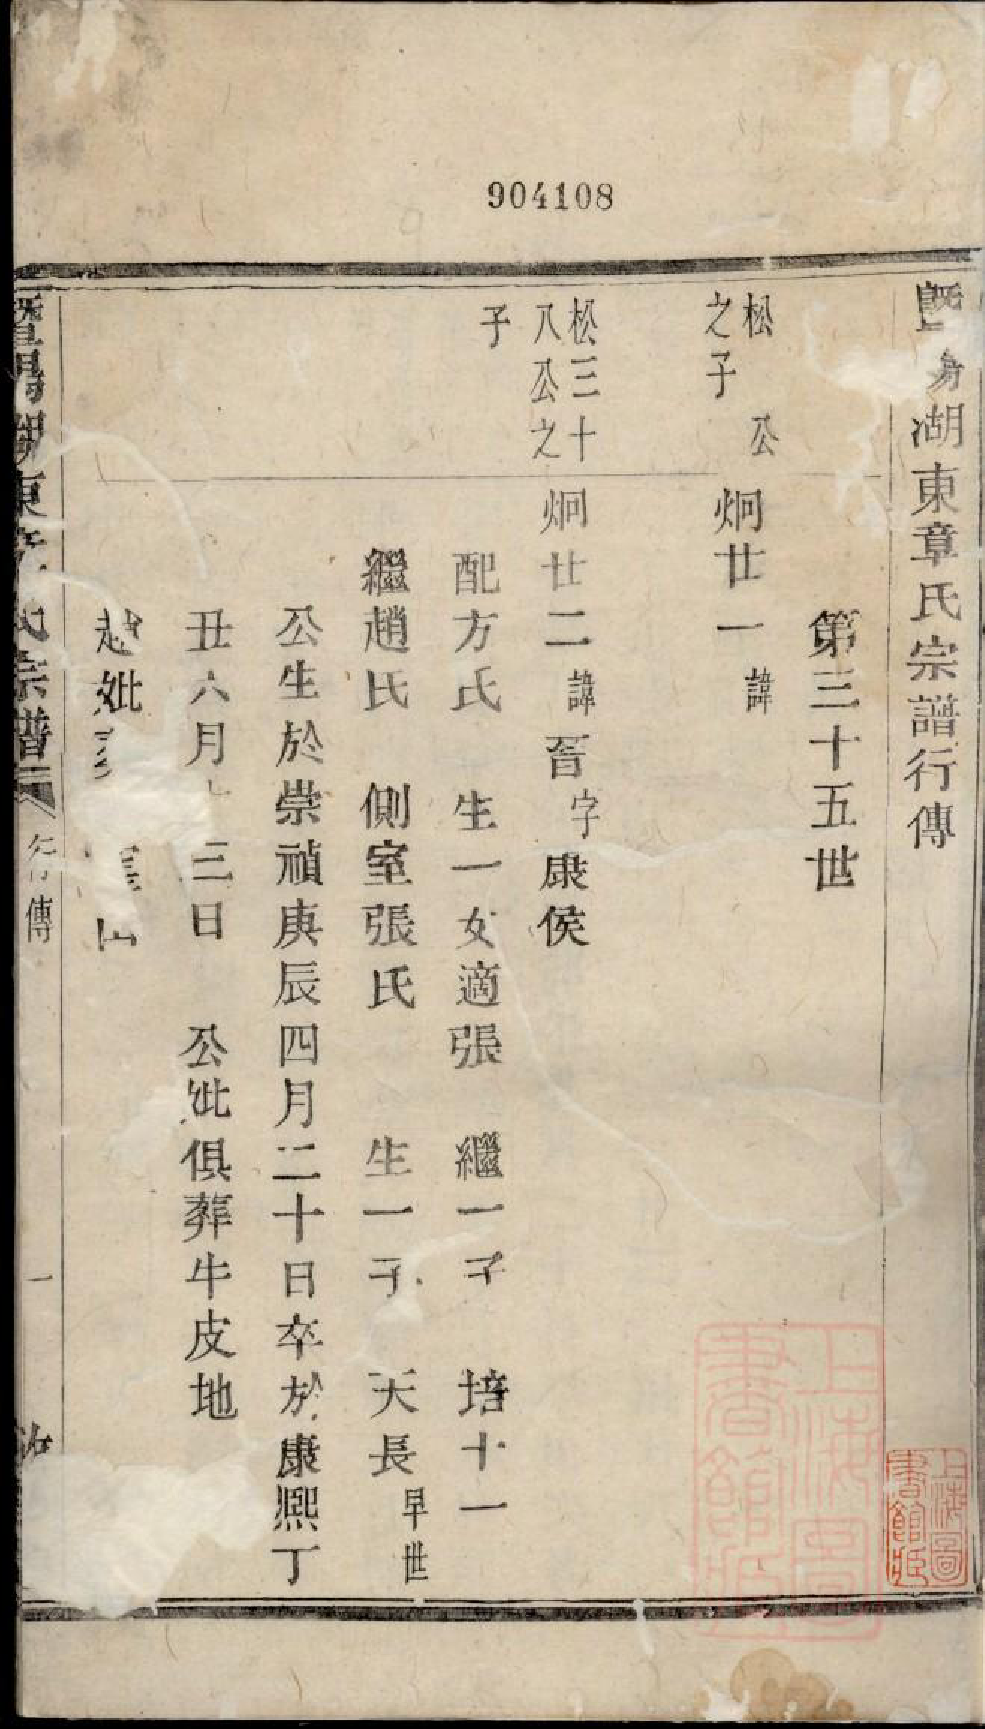 904108
暨陽湖東章氏宗譜行傳
第三十五世
松　公
之子
炯廿一 諱
松三十
八公之
子
炯廿二 諱 晉 字 康侯
配方氏　生一女適張　繼一子　培十一
繼趙氏　側室張氏　生一子　天長 早世
公生於崇禎庚辰四月二十日卒於康熙丁
丑六月十三日　公妣俱葬牛皮地
趙妣　山
暨陽湖東章氏宗譜
行傳
一
上海圖
書館藏
上海圖
書館藏